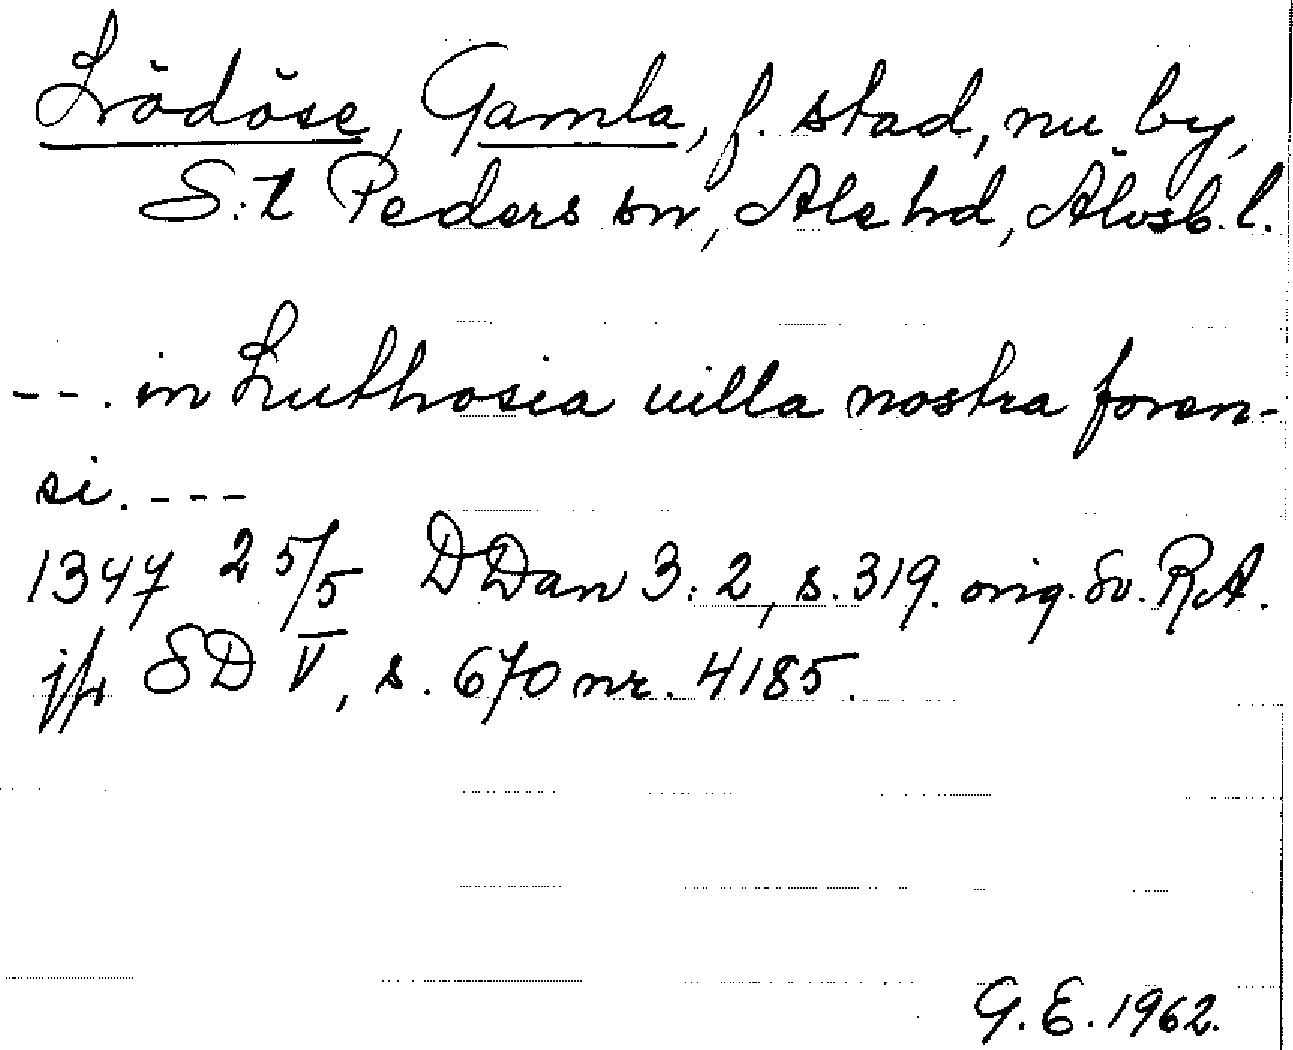 Lödöse, Gamla, f. stad, nu by,
S:t Peders sn, Ale hd, Älvsb. l.
--. in Luthosia uilla nostra foren-
si. ---
1347 25/5 DDan 3:2, s. 319. orig. Sv. RA.
jfr SD V, s. 670 nr. 4185.
G. E. 1962.